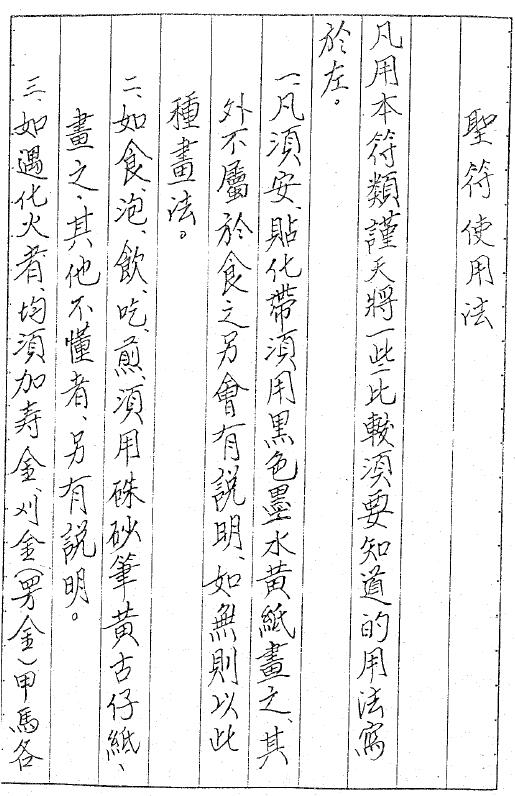 聖符使用法
凡用本符類謹天將一些比較須要知道的用法寫
於左。
一、凡須安、貼化帶須用黑色墨水黃紙畫之、其
外不屬於食之另會有説明、如無則以此
種畫法。
二、如食、泡、飲、吃、煎、須用硃砂筆黃古仔紙、
畫之、其他不懂者、另有説明。
三、如遇化火者、均須加寿金、刈金(男金)甲馬各